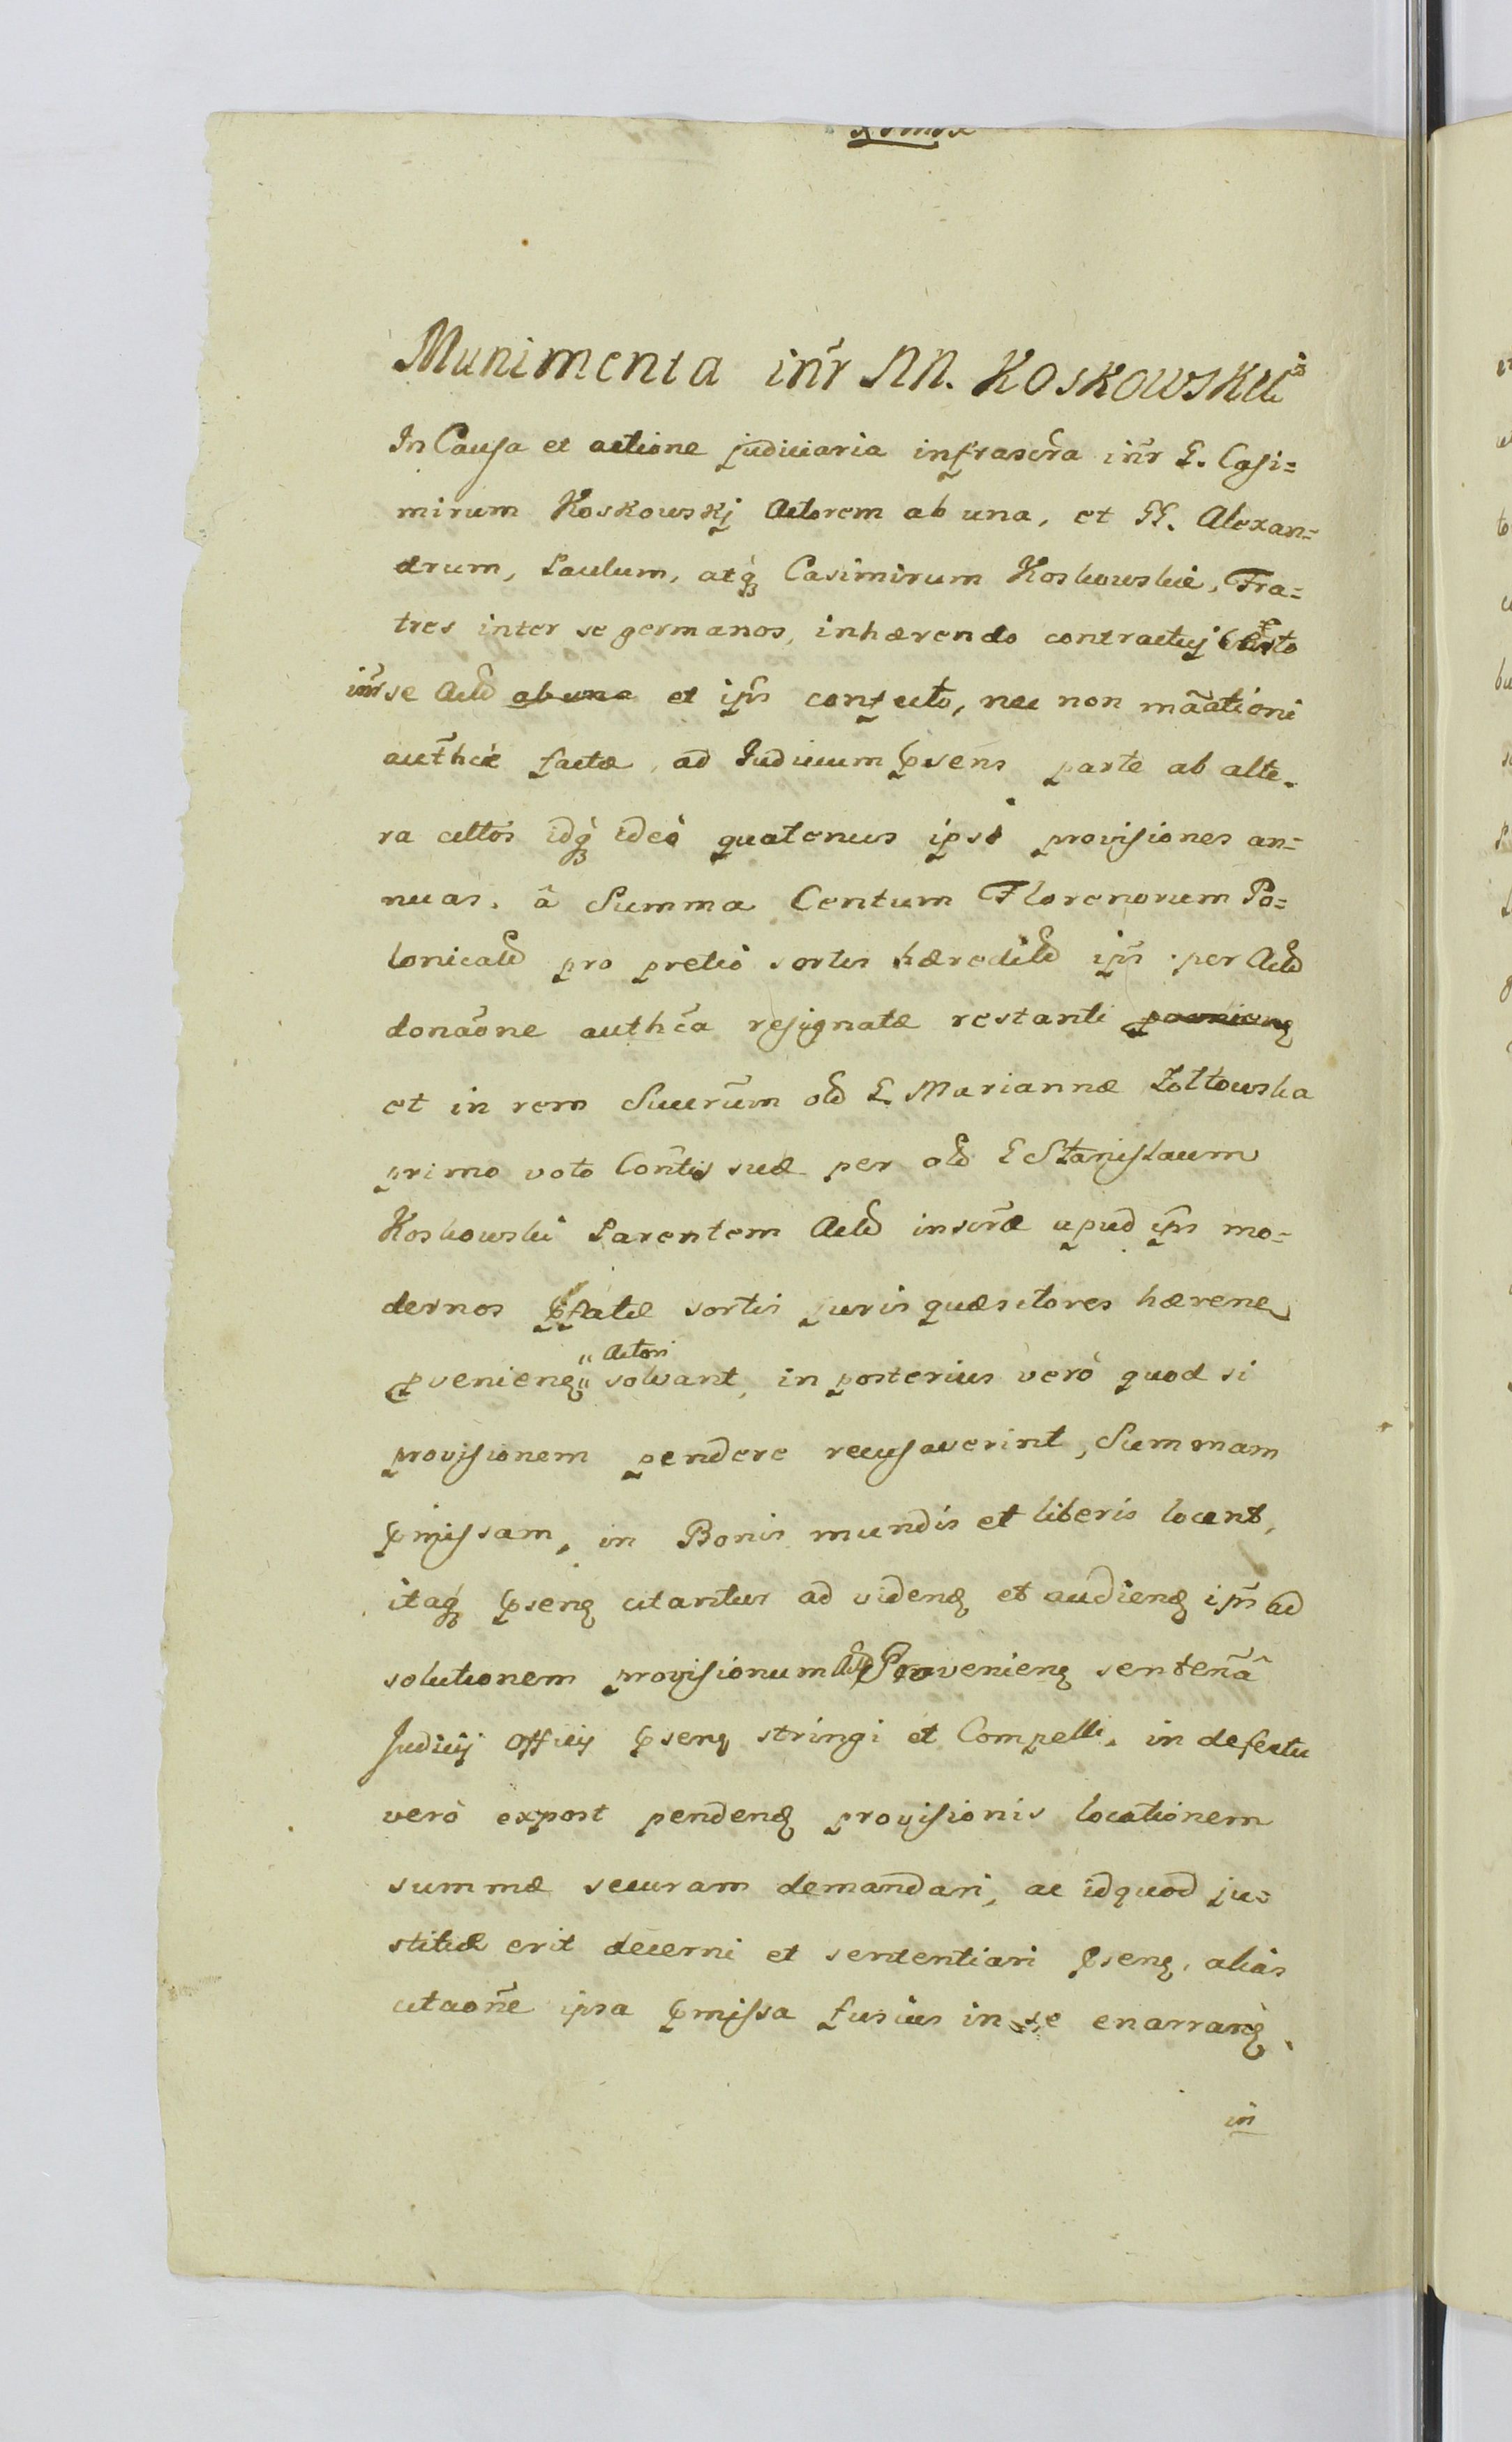 Munimenta inr̃ NN. Koskowskie
In Causa et actione judiciaria infrascr̃a inr̃ G. Casi=
mirum Koskowskj Actorem ab una, et GG. Alexan=
drum, Paulum, atq́ Casimirum Koskowskie, Fra=
tres inter se germanos, inhærendo contractuj
inr̃ se Act̃ ab una et ip̃s confecto, nec non mãationi
auth̃cæ factæ, ad Judicium p̃sens parte ab alte=
ra cittos idq́ ideò quatenus ipsi provisiones an=
nuas, â Summa Centum Florenorum Po=
lonical̃ pro pretio sortis hæredit̃ ip̃s per Act̃
donãone authc̃a resignatæ restanti proveniend
et in rem Successũm ol̃ G. Mariannæ Zołtowska
primo voto Coñtis suæ per ol̃ G Stanislaum
Koskowski Parentem Act̃ inscr̃æ apud ip̃s mo=
dernos p̃fatæ sortis juris quæsitores hæren̄
Actori
p̃venien̄ solvant, in posterius verò quod si
provisionem pendere recusaverint, Summam
p̃missam, in Bonis mundis et liberis locent,
itaq́ p̃sen̄ citantur ad viden̄ et audien̄ ip̃s ad
solutionem provisionum Provenien̄ senteñâ
Judicij Officij p̃sen̄ stringi et Compelli, in defectu
verò expost penden̄ provisionis locationem
summæ securam demandari, ac idquod ju=
stitiæ erit decerni et sententiari p̃sen̄, aliàs
citaoñe ipsa p̃missa fusius in se enarran̄.
in